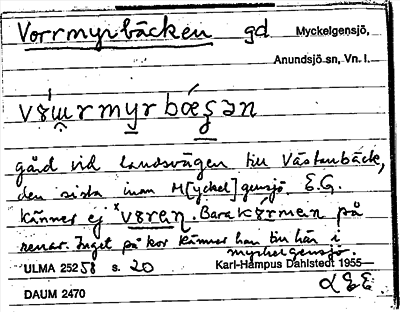 Vorrmyrbäcken gd Myckelgensjö,
Anundsjö sn, Vn. l.
gård vid landsvägen till Västanbäck,
den sista inan M[yckel]gensjö. E.G.
känner ej på
renar. Inget på kor känner han till här i
myckelgensjö.
ULMA 25258 s. 20 Karl-Hampus Dahlstedt 1955—
DAUM 2470